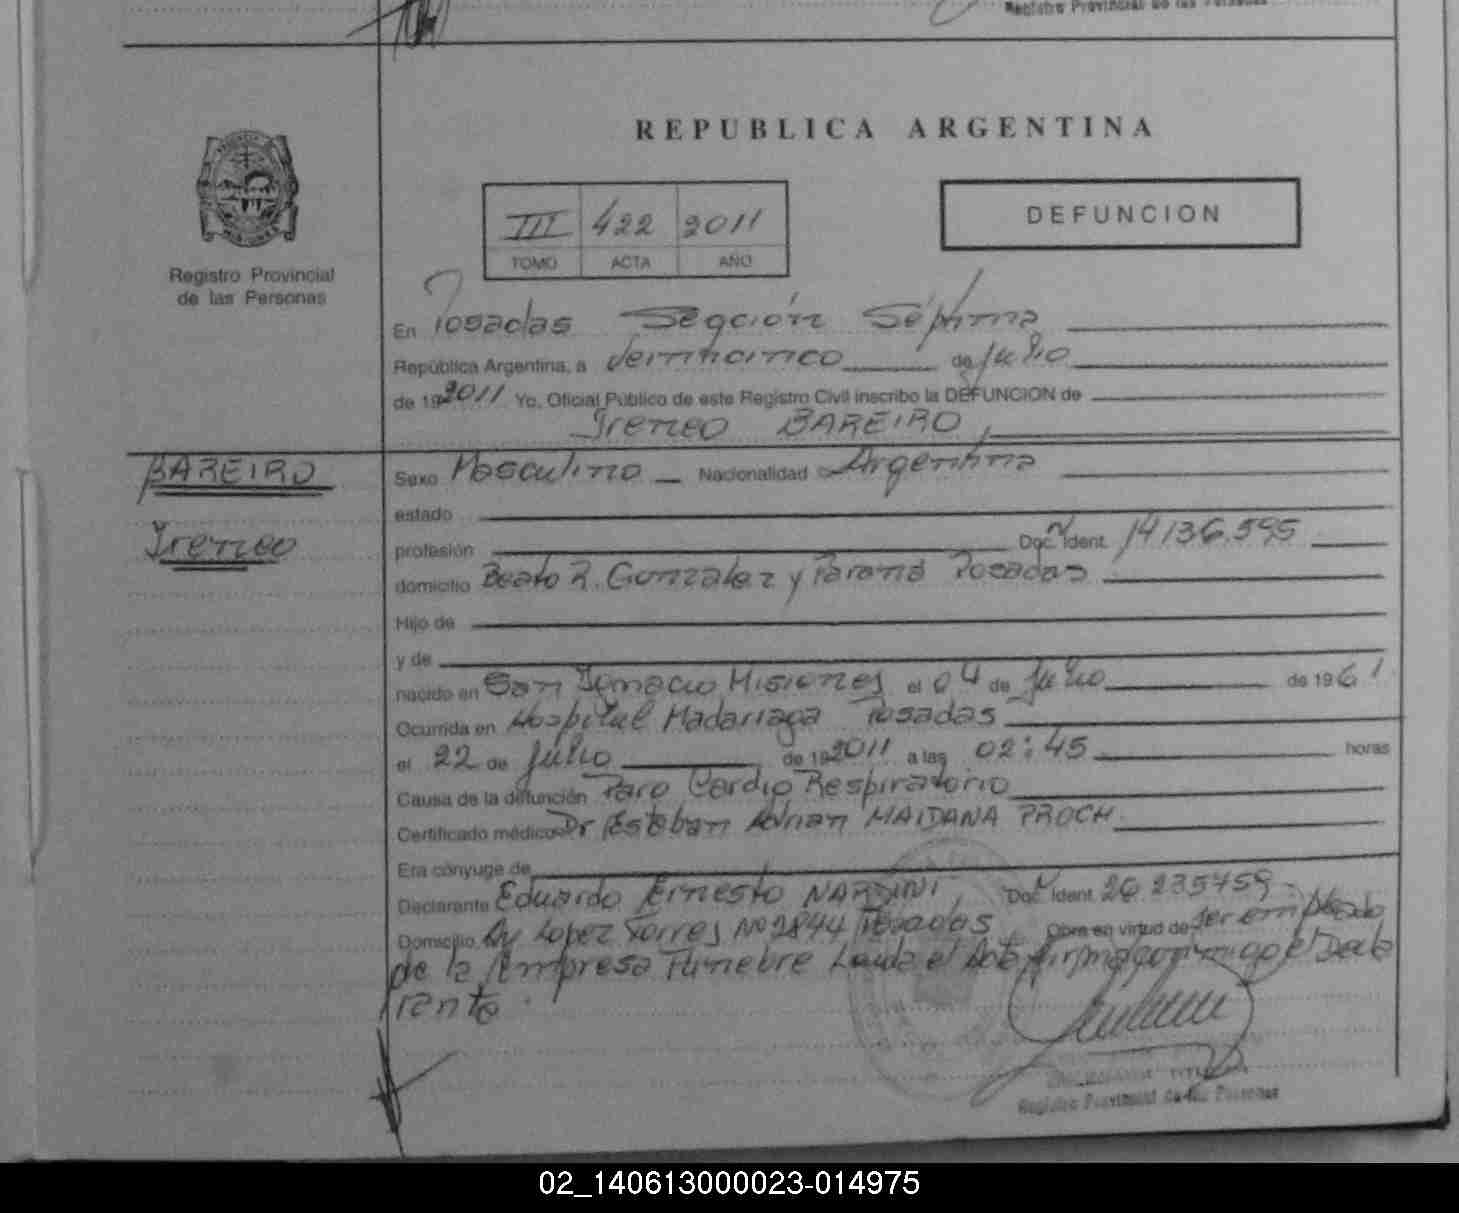 Registro Provincial de las Personas
REPUBLICA ARGENTINA
III 422 2011
TOMO ACTA AÑO
DEFUNCION
Registro Provincial
de las Personas
En Posadas Segción Séptima
República Argentina, a Veintincinco de julio
de 19 2011 Yo, Oficial Público de este Registro Civil inscribo la DEFUNCION de
Ireneo BAREIRO
BAREIRO
Ireneo
Sexo Masculino Nacionalidad Argentina
estado
profesión Doc. Ident. 14136.595
domicilio Beato R. Gonzalez y Paraná Posadas
Hijo de
y de
nacido en San Ignacio Misiones el 04 de Julio de 1961
Ocurrida en Hospital Madariaga Posadas
el 22 de julio de 19 2011 a las 02:45 horas
Causa de la defunción Paro Cardio Respiratorio
Certificado médico Dr Esteban Adrian MAIDANA PROCH
Era cónyuge de
Declarante Eduardo Ernesto NARDINI Doc. Ident. 26.235459
Domicilio Av Lopez Torres Nº 2844 Posadas Obra en virtud de ser empleado
de la Empresa Funebre Leida el Acta firma conmigo el Decla
rante.
Registro Provincial de las Personas
02_140613000023-014975